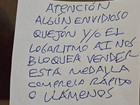 ATENCIÓN
ALGÚN ENVIDIOSO
QUEJÓN Y/O EL
LOGARITMO AI NOS
BLOQUEA VENDER
ESTA MEDALLA
COMPRELA RÁPIDO
O LLÁMENOS